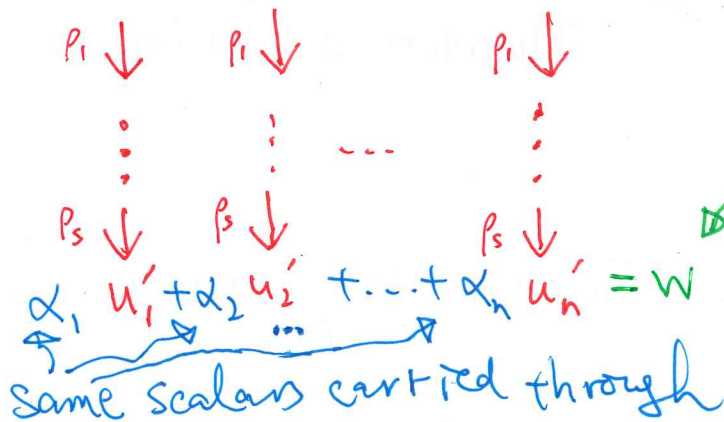 ρ₁ ↓ ρ₁ ↓ ρ₁ ↓
⋮ ⋮ ... ⋮
ρₛ ↓ ρₛ ↓ ρₛ ↓
α₁ u₁′ + α₂ u₂′ + ... + αₙ uₙ′ = w
...
same scalars carried through